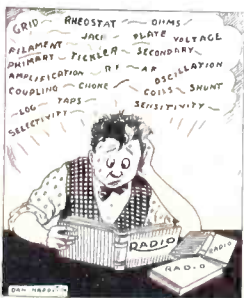 GRID ~ RHEOSTAT ~ OHMS ~
JACK ~ PLATE VOLTAGE
FILAMENT
PRIMARY ~ TICKLER ~ SECONDARY ~
AMPLIFICATION ~ RF ~ AF OSCILLATION
COUPLING ~ CHOKE ~ COILS ~ SHUNT
~LOG~ TAPS ~ SENSITIVITY ~
SELECTIVITY ~
RADIO
RADIO
RADIO
DAN